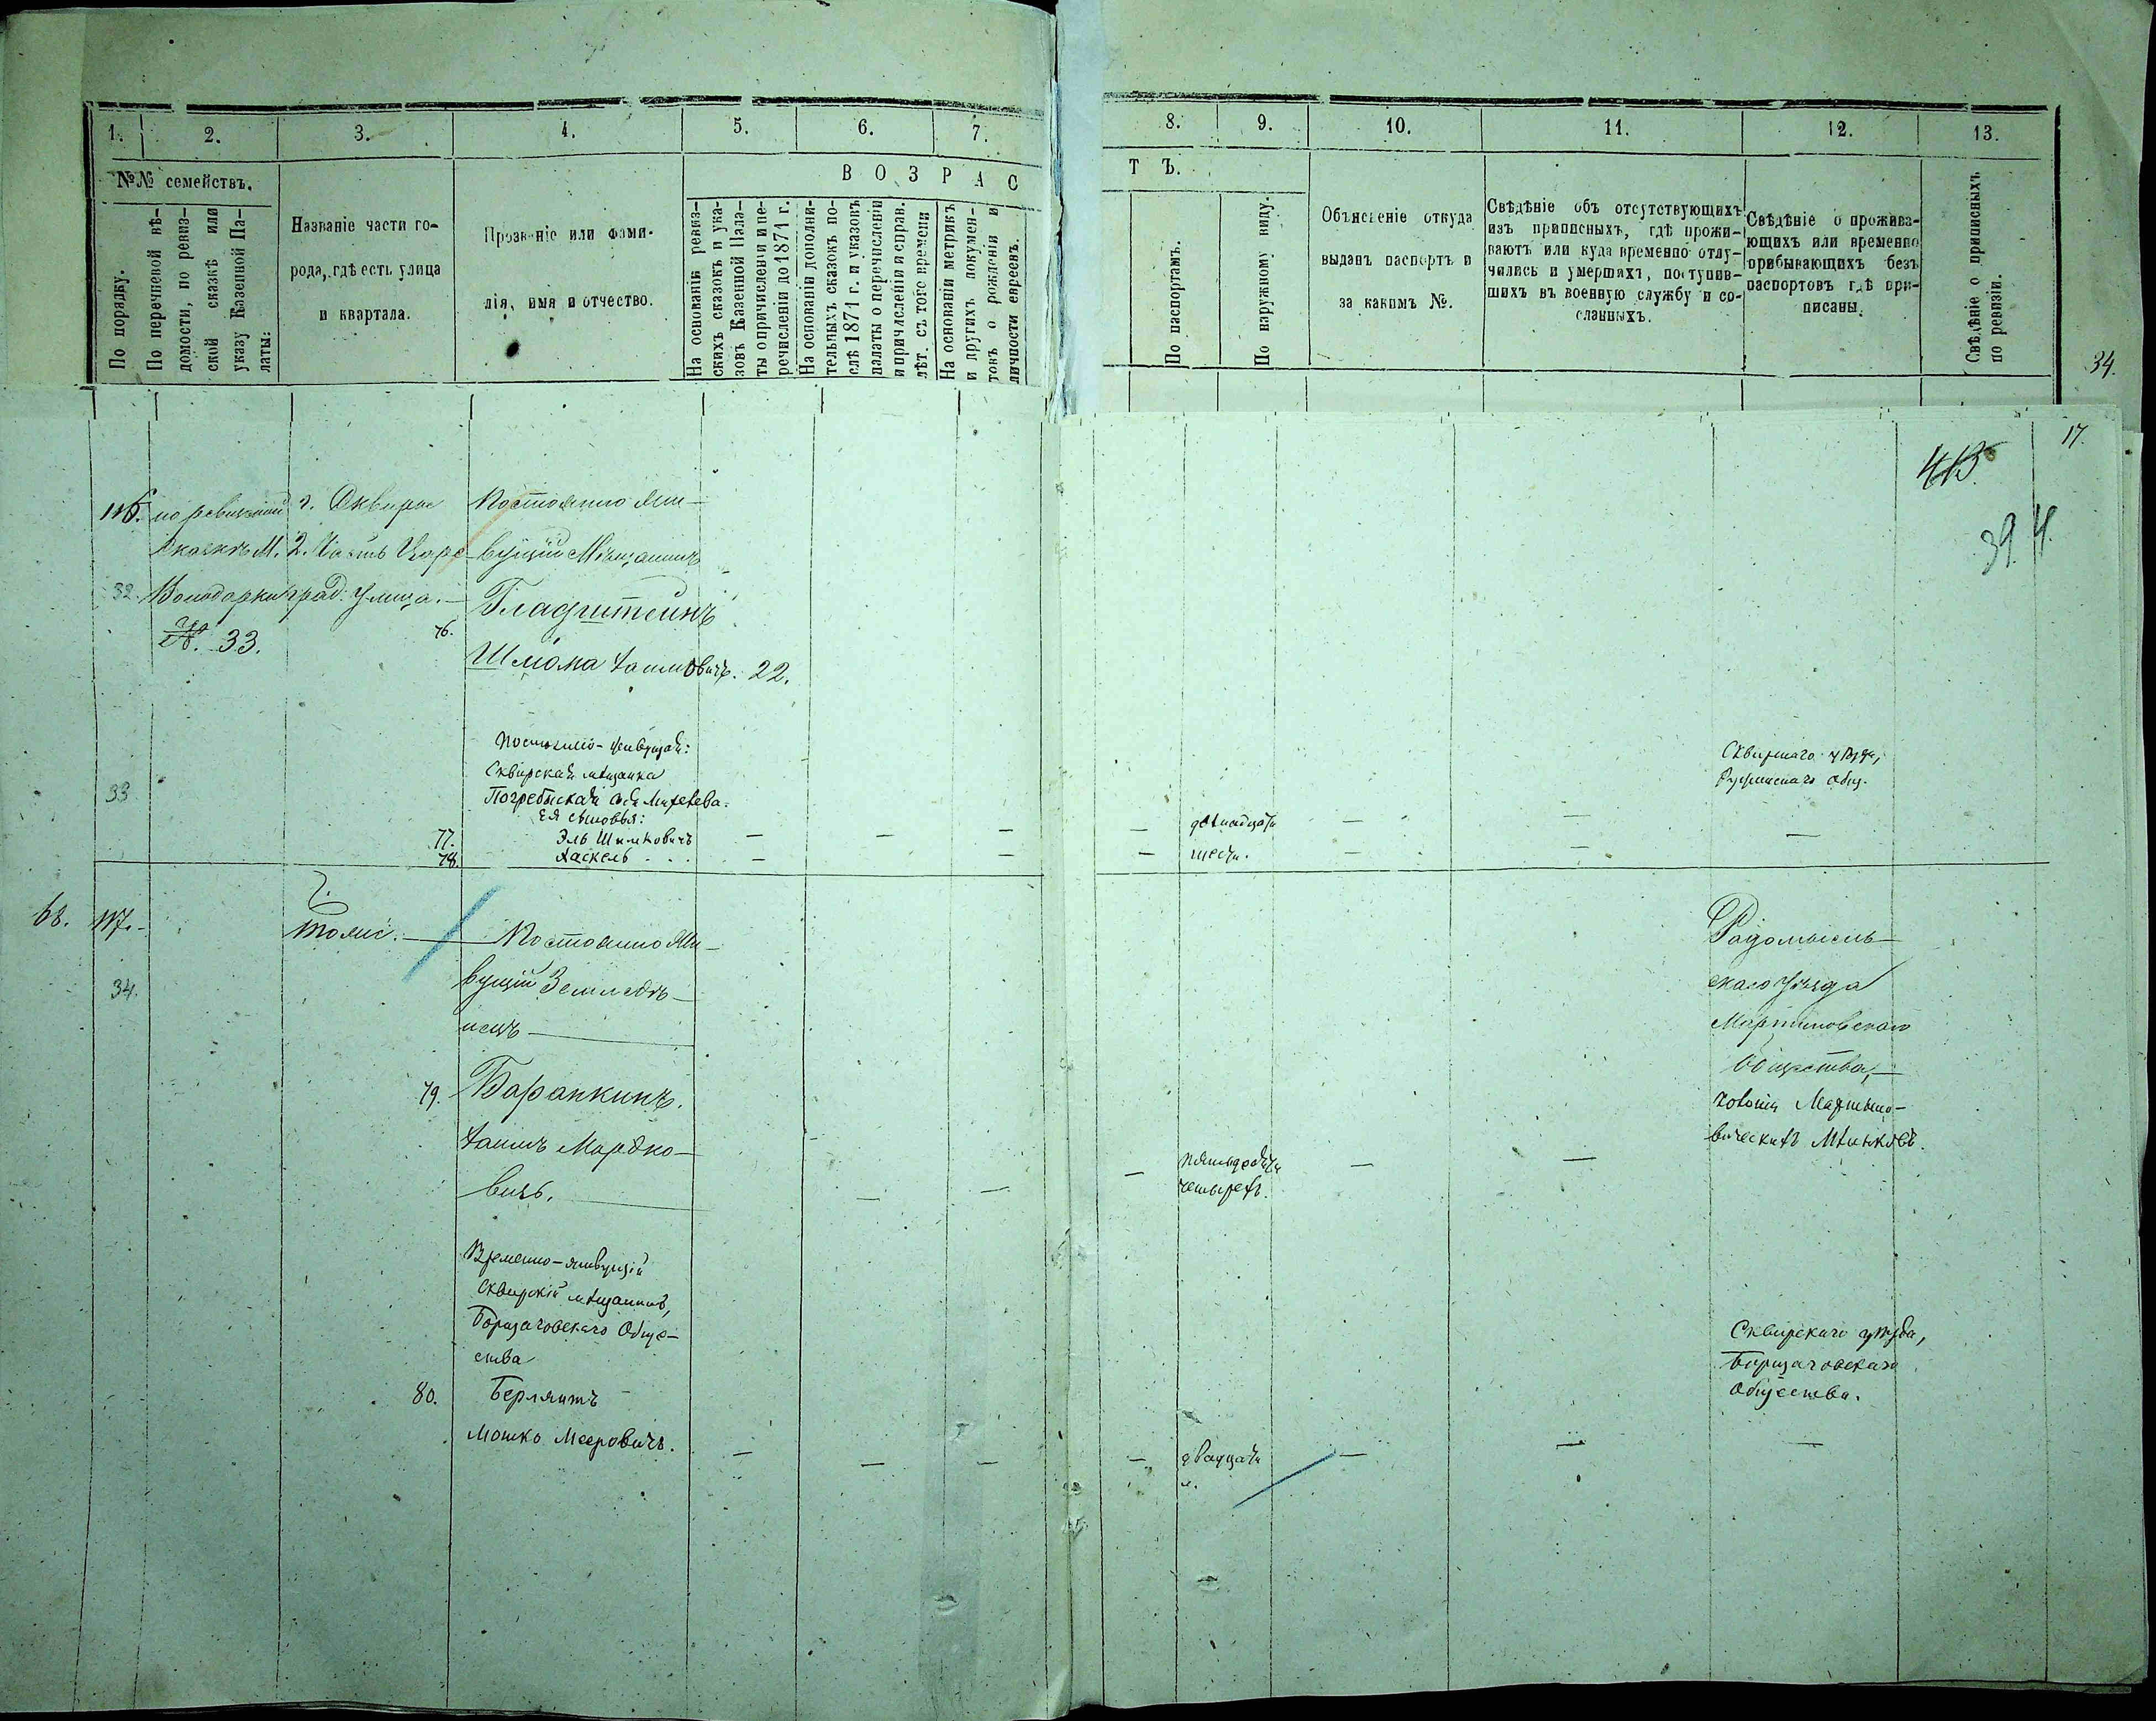 1.
2.
3.
4.
5.
6.
7.
№№ семействъ.
По порядку.
По перечневой вѣ-
домости, по ревиз-
ской сказкѣ или
указу Казенной Па-
латы:
Названіе части го-
рода, гдѣ есть улица
и квартала.
Прозваніе или фами-
лія, имя и отчество.
ВОЗРАС
На основаніи ревиз-
скихъ сказокъ и ука-
зовъ Казенной Пала-
ты о причисленіи и пе-
речисленіи до 1871 г.
На основаніи дополни-
тельныхъ сказокъ по-
слѣ 1871 г. и указовъ
палаты о перечисленіи
и причисленіи и справ.
лѣт. съ того времени
На основаніи метрикъ
и другихъ докумен-
товъ о рожденіи и
личности евреевъ.
8.
9.
10.
11.
12.
13.
ТЪ.
По паспортамъ.
По наружному виду.
Объясненіе откуда
выданъ паспортъ и
за какимъ №.
Свѣдѣніе объ отсутствующихъ
изъ приписныхъ, гдѣ прожи-
ваютъ или куда временно отлу-
чились и умершихъ, поступив-
шихъ въ военную службу и со-
сланныхъ.
Свѣдѣніе о прожива-
ющихъ или временно
прибывающихъ безъ
паспортовъ гдѣ при-
писаны.
Свѣдѣніе о приписныхъ
по ревизіи.
34.
17.
413.
39
4.
116.
по ревизской
сказкѣ М.
Володарки
№. 33.
32.
г. Сквира
2. Часть Цар
град. улица.
76.
Постоянно жи-
вущій Мѣщанинъ
Гладштейнъ
Шлёма Хаимовичъ. 22.
33
Постоянно-живущая:
Сквирская мѣщанка
Погребыская
Ея сыновья:
77. Эль Шмиловичъ — — —
78. Хаскель . . . — —
— двѣнадцати — — —
— шести. — —
Сквирскаго уѣзда,
Общ.
68.
117.
34.
г.
тоже.
Постоянно жи-
вущій Земледѣ-
лецъ
79. Баранкинъ.
Хаимъ Мордко-
вичъ. — —
— пятьдесяти — —
четырехъ.
Радомысль-
скаго Уѣзда
Мартиновскаго
Общества,
Временно-живущій
Сквирскій мѣщанинъ,
Борщаговскаго Обще-
ства
80. Берлянтъ
Мошко Мееровичъ. — — —
— двадцати — — —
л.
Сквирскаго уѣзда,
Борщаговскаго
Общества.